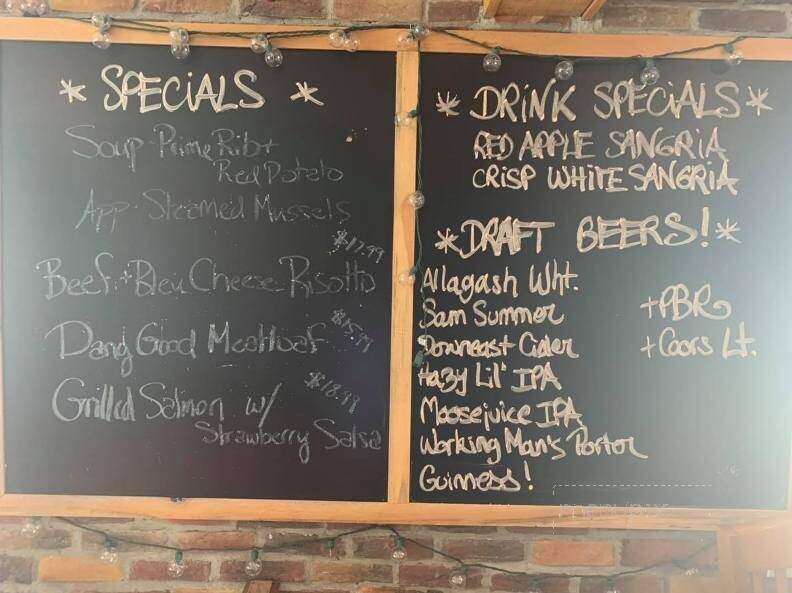 * SPECiALS *
Soup - Prime Rib +
Red Potato
App - Steamed Mussels
$17.99
Beef + Bleu Cheese Risotto
$15.99
Dang Good Meatloaf
$18.99
Grilled Salmon w/
Strawberry Salsa
* DRiNK SPECIALS *
RED APPLE SANGRiA
CRiSP WHITE SANGRiA
* DRAFT BEERS! *
Allagash Wht.
Sam Summer
Downeast Cider
Hazy Lil' IPA
Moosejuice IPA
Working Man's Portor
Guinness!
+ PBR
+ Coors Lt.